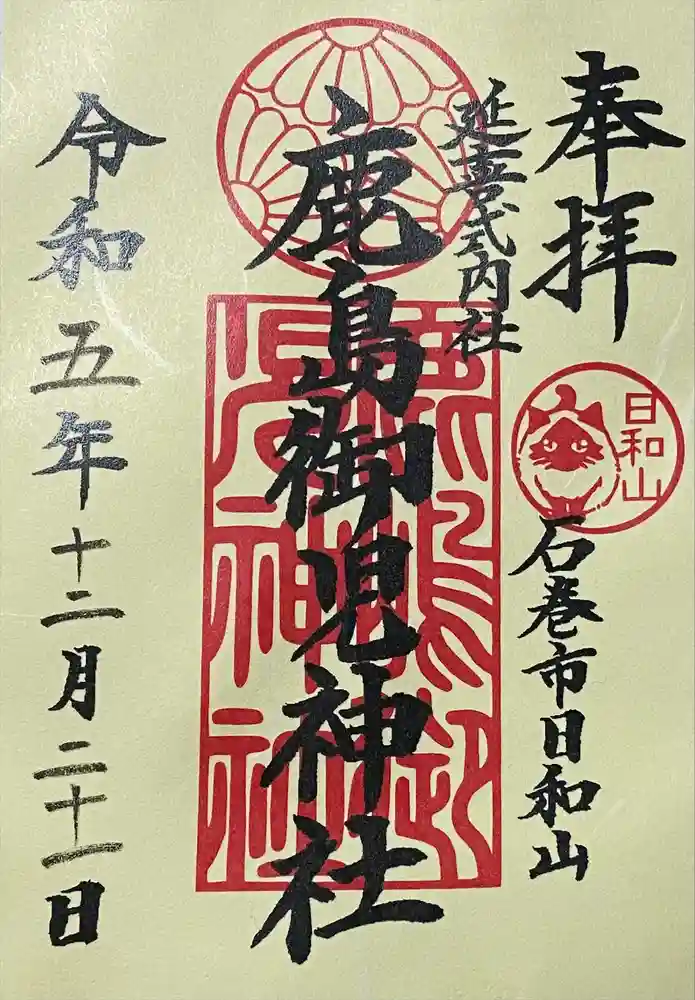 奉拝
延喜式内社
日和山
石巻市日和山
鹿島御児神社
令和五年十二月二十一日